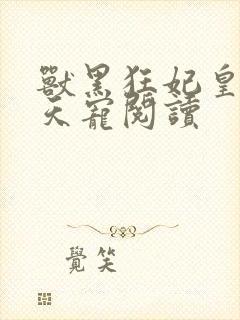 獸黑狂妃皇
天寵閱讀
覺笑